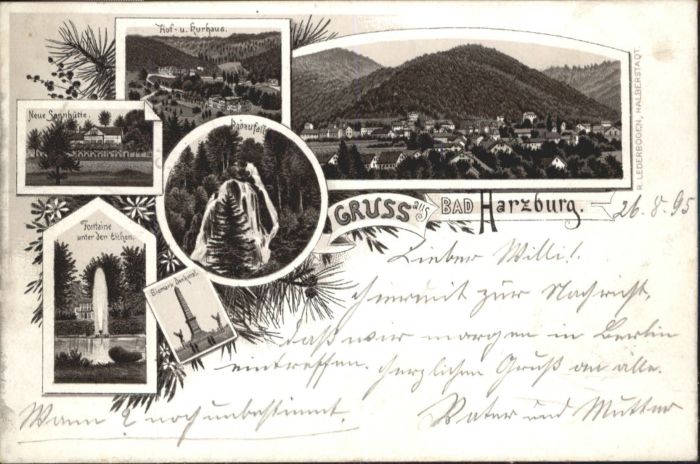 Hof- u. Kurhaus.
Neue Sennhütte.
Radaufall.
Fontaine
unter den Eichen.
Bismark Denkmal.
R. LEDERBOGEN, HALBERSTADT.
GRUSS aus BAD Harzburg.
26.8.95
Lieber Willi!
Hiermit zur Nachricht,
daß wir morgen in Berlin
eintreffen. Herzlichen Gruß an alle.
Vater und Mutter
Wann? noch unbestimmt.